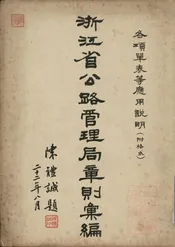 各項單表等應用說明(附格式)
浙江省公路管理局章則彙編
陳體誠題
二十二年八月